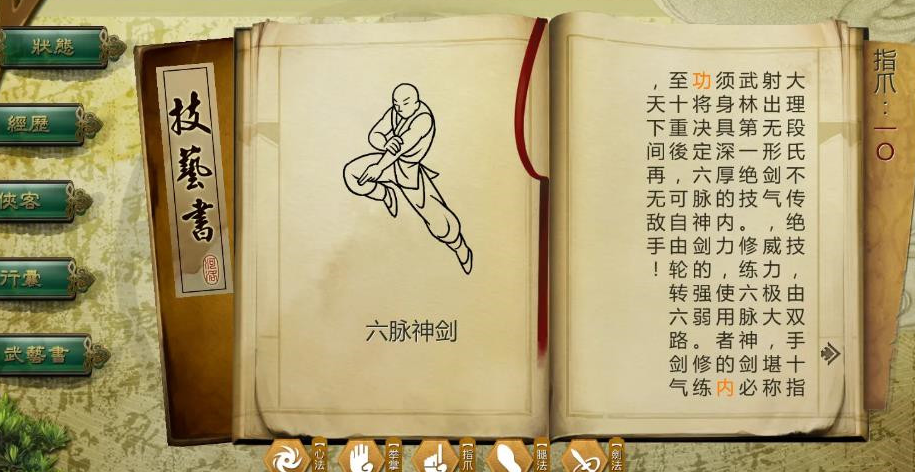 狀態
經歷
俠客
行囊
武藝書
技藝書
六脉神剑
大理段氏不传绝技，由双手十指
射出无形剑气，威力极大，堪称
武林第一绝技。修练六脉神剑必
须身具深厚的内力，使用者的内
功将决定六脉神剑的强弱。修练
至十重後，可自由轮转六路剑气
，天下间再无敌手！
指爪：一〇
心法
拳掌
指爪
腿法
劍法